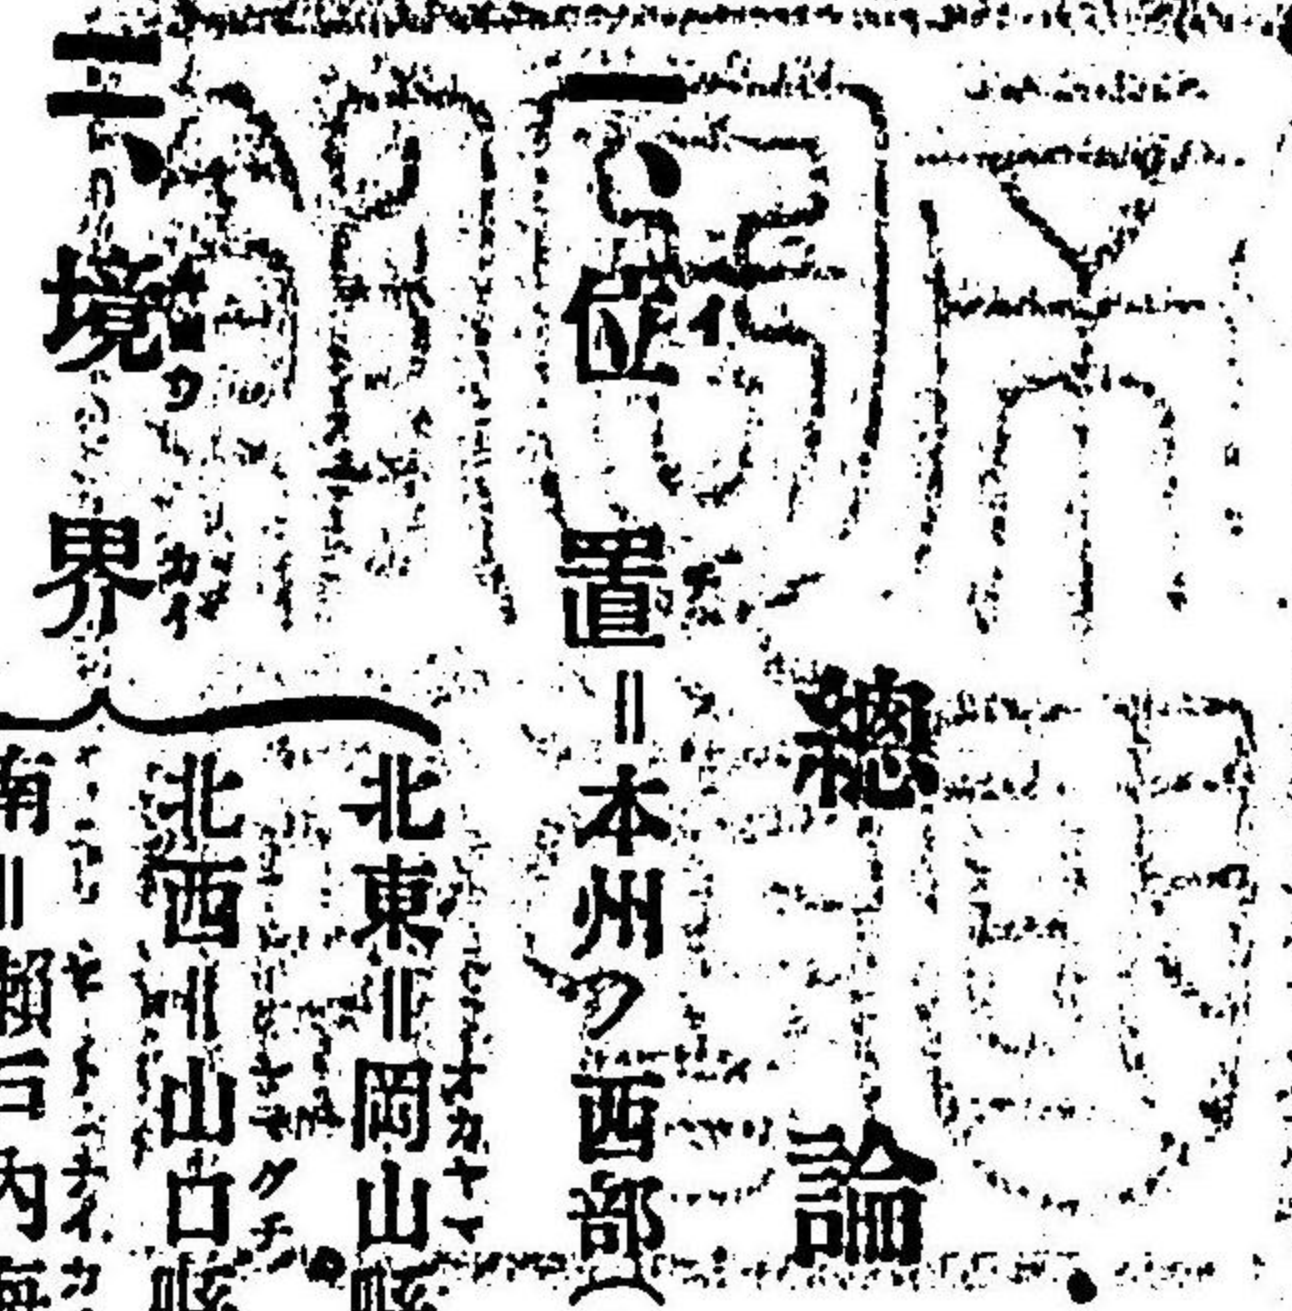 總論
一、位置＝本州ノ西部（
二、境界
北東＝岡山縣
北西＝山口縣
南＝瀨戸內海